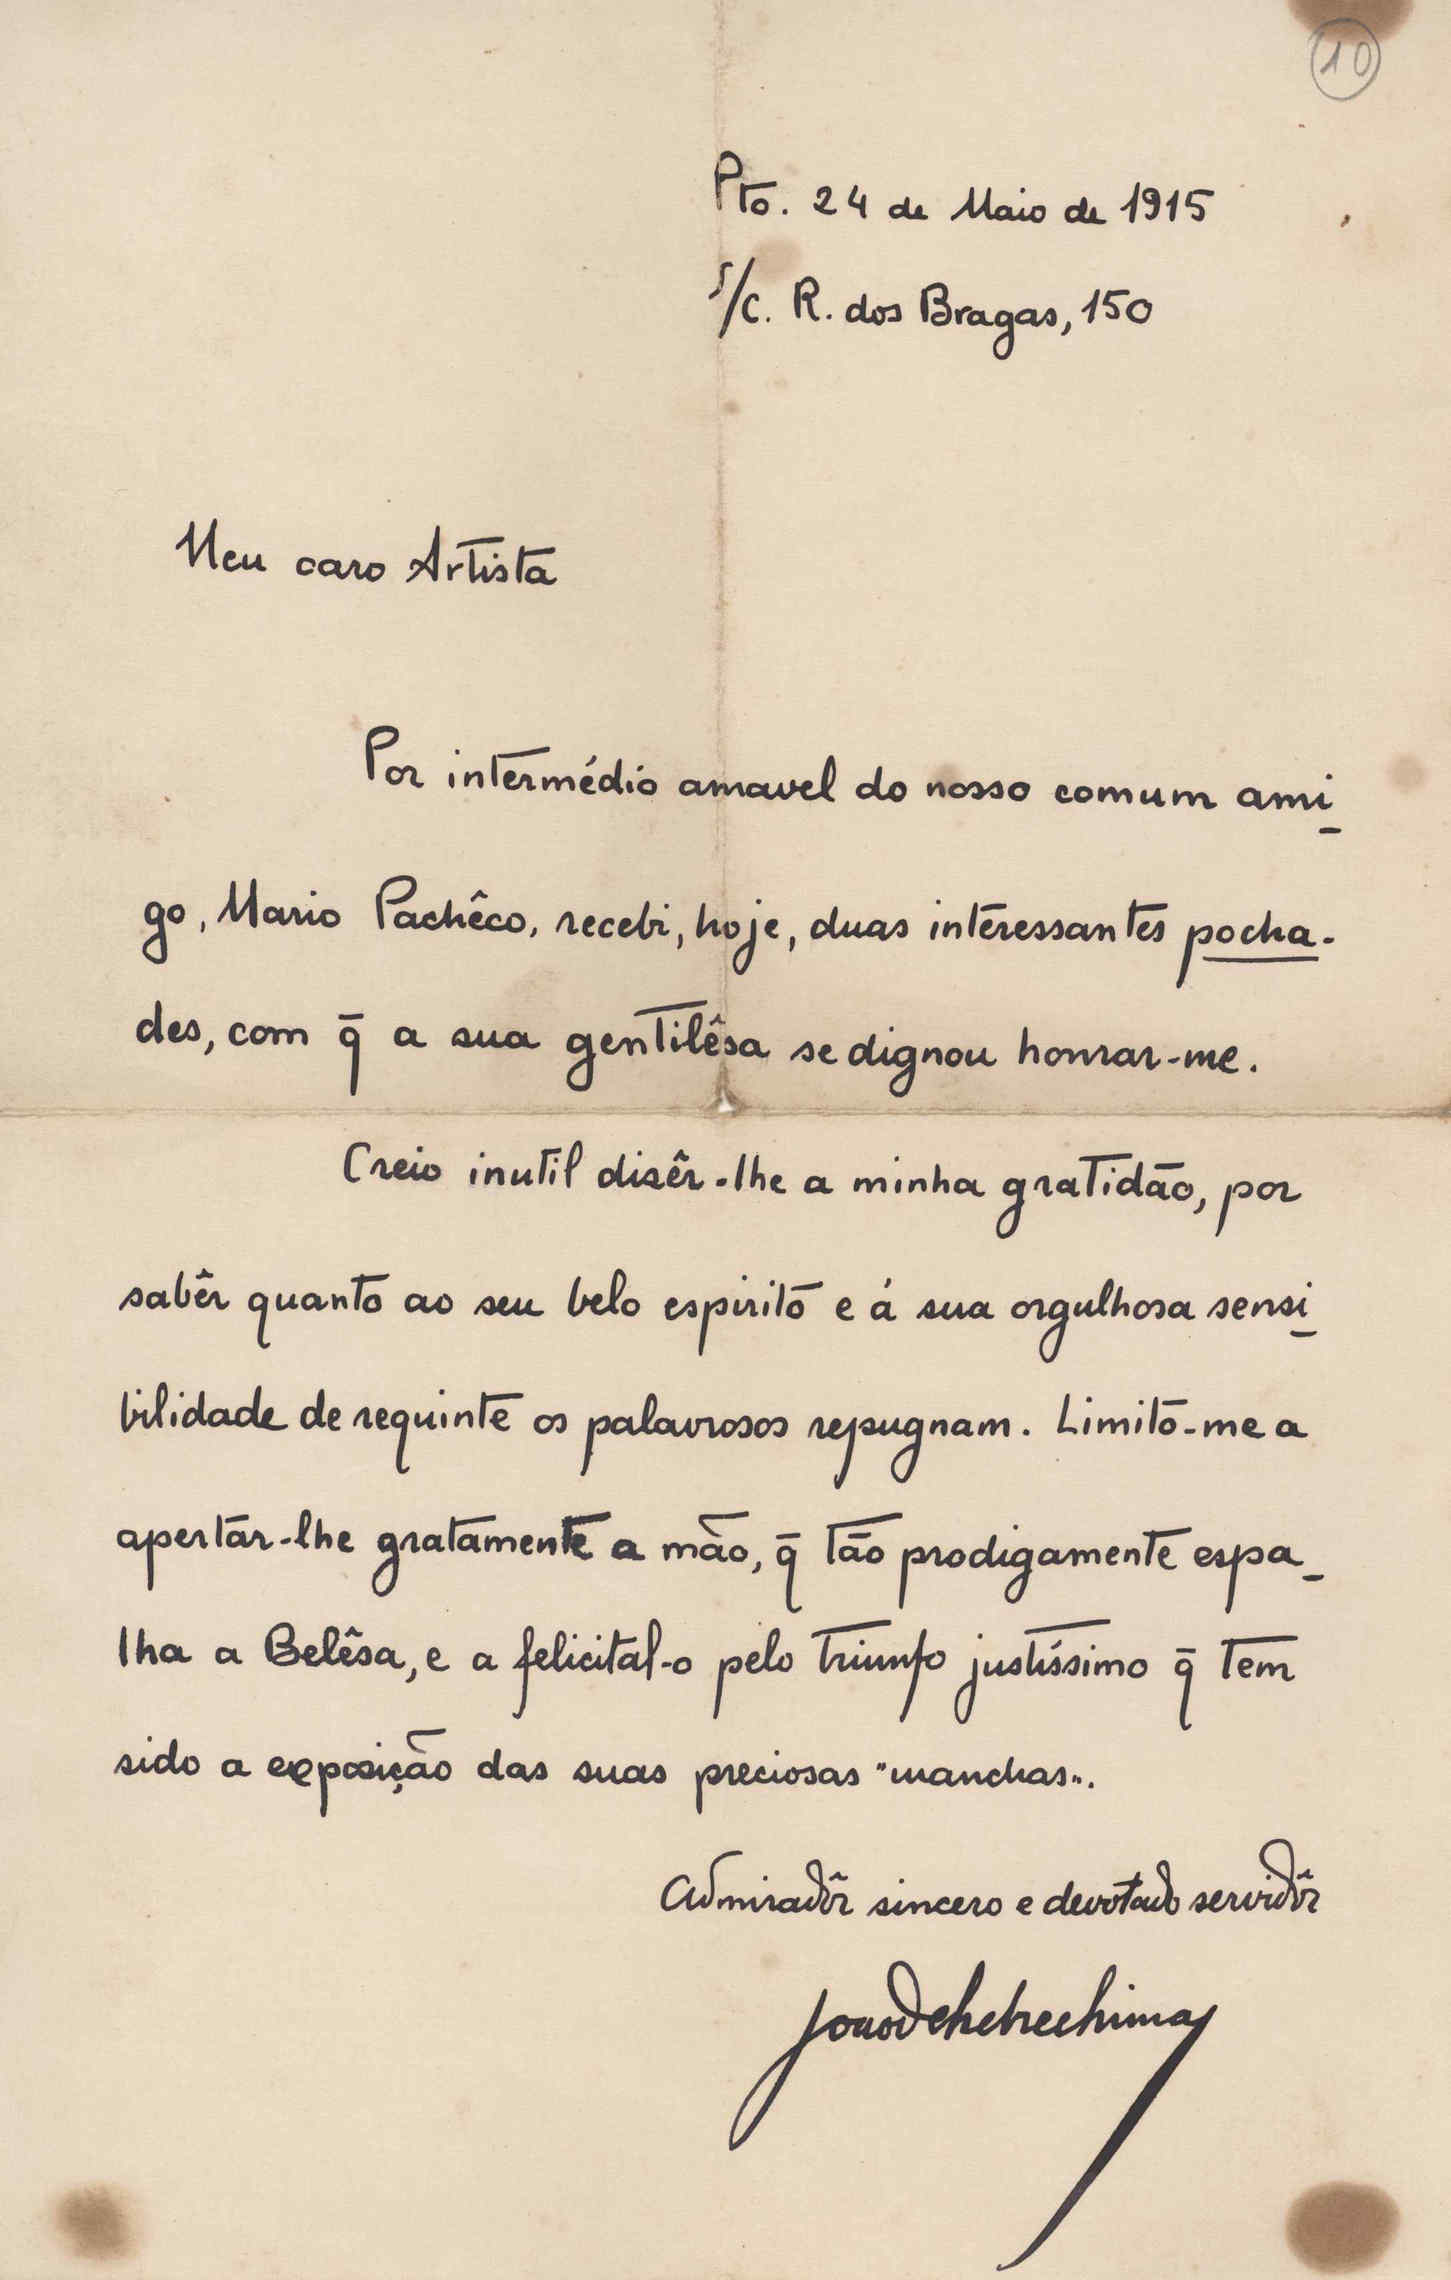 10
Pto. 24 de Maio de 1915
s/c. R. dos Bragas, 150
Meu caro Artista
Por intermédio amavel do nosso comum ami-
go, Mario Pachêco, recebi, hoje, duas interessantes pocha-
des, com q̄ a sua gentilêsa se dignou honrar-me.
Creio inutil disêr-lhe a minha gratidão, por
sabêr quanto ao seu belo espirito e á sua orgulhosa sensi-
bilidade de requinte os palavrosos repugnam. Limito-me a
apertar-lhe gratamente a mão, q̄ tão prodigamente espa-
lha a Belêsa, e a felicital-o pelo triunfo justíssimo q̄ tem
sido a exposição das suas preciosas "manchas".
Admiradôr sincero e devotado servidôr